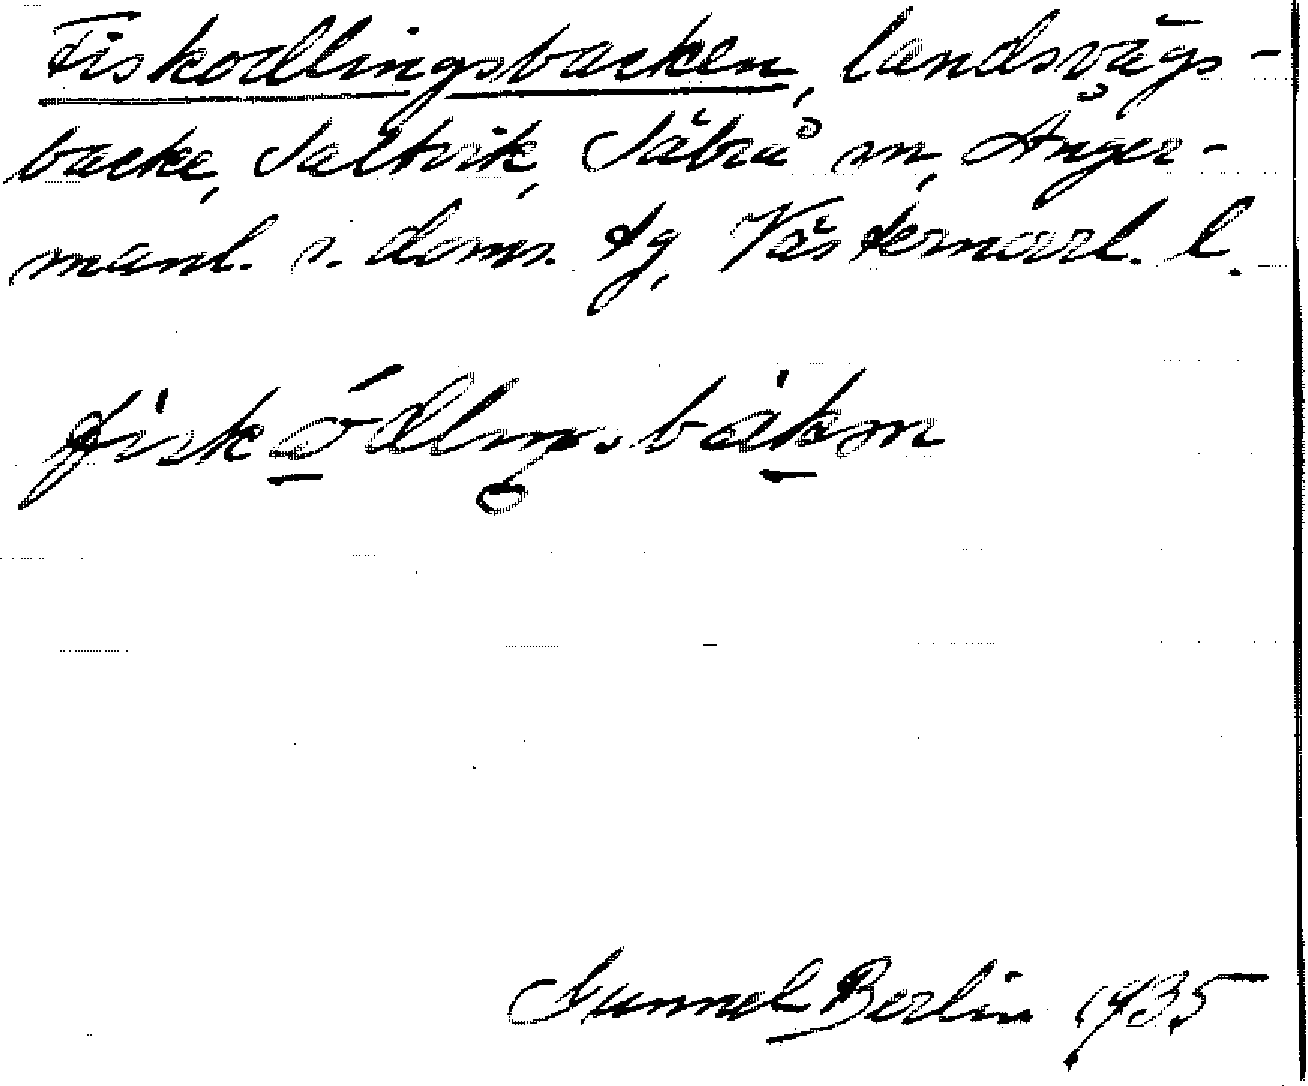 Fiskodlingsbacken, landsvägs-
backe, Saltvik, Säbrå sn, Ånger-
manl. s. doms. tg, Västernorrl. l.
fiskōdlıŋsbàkən
Gunnel Berlin 1935